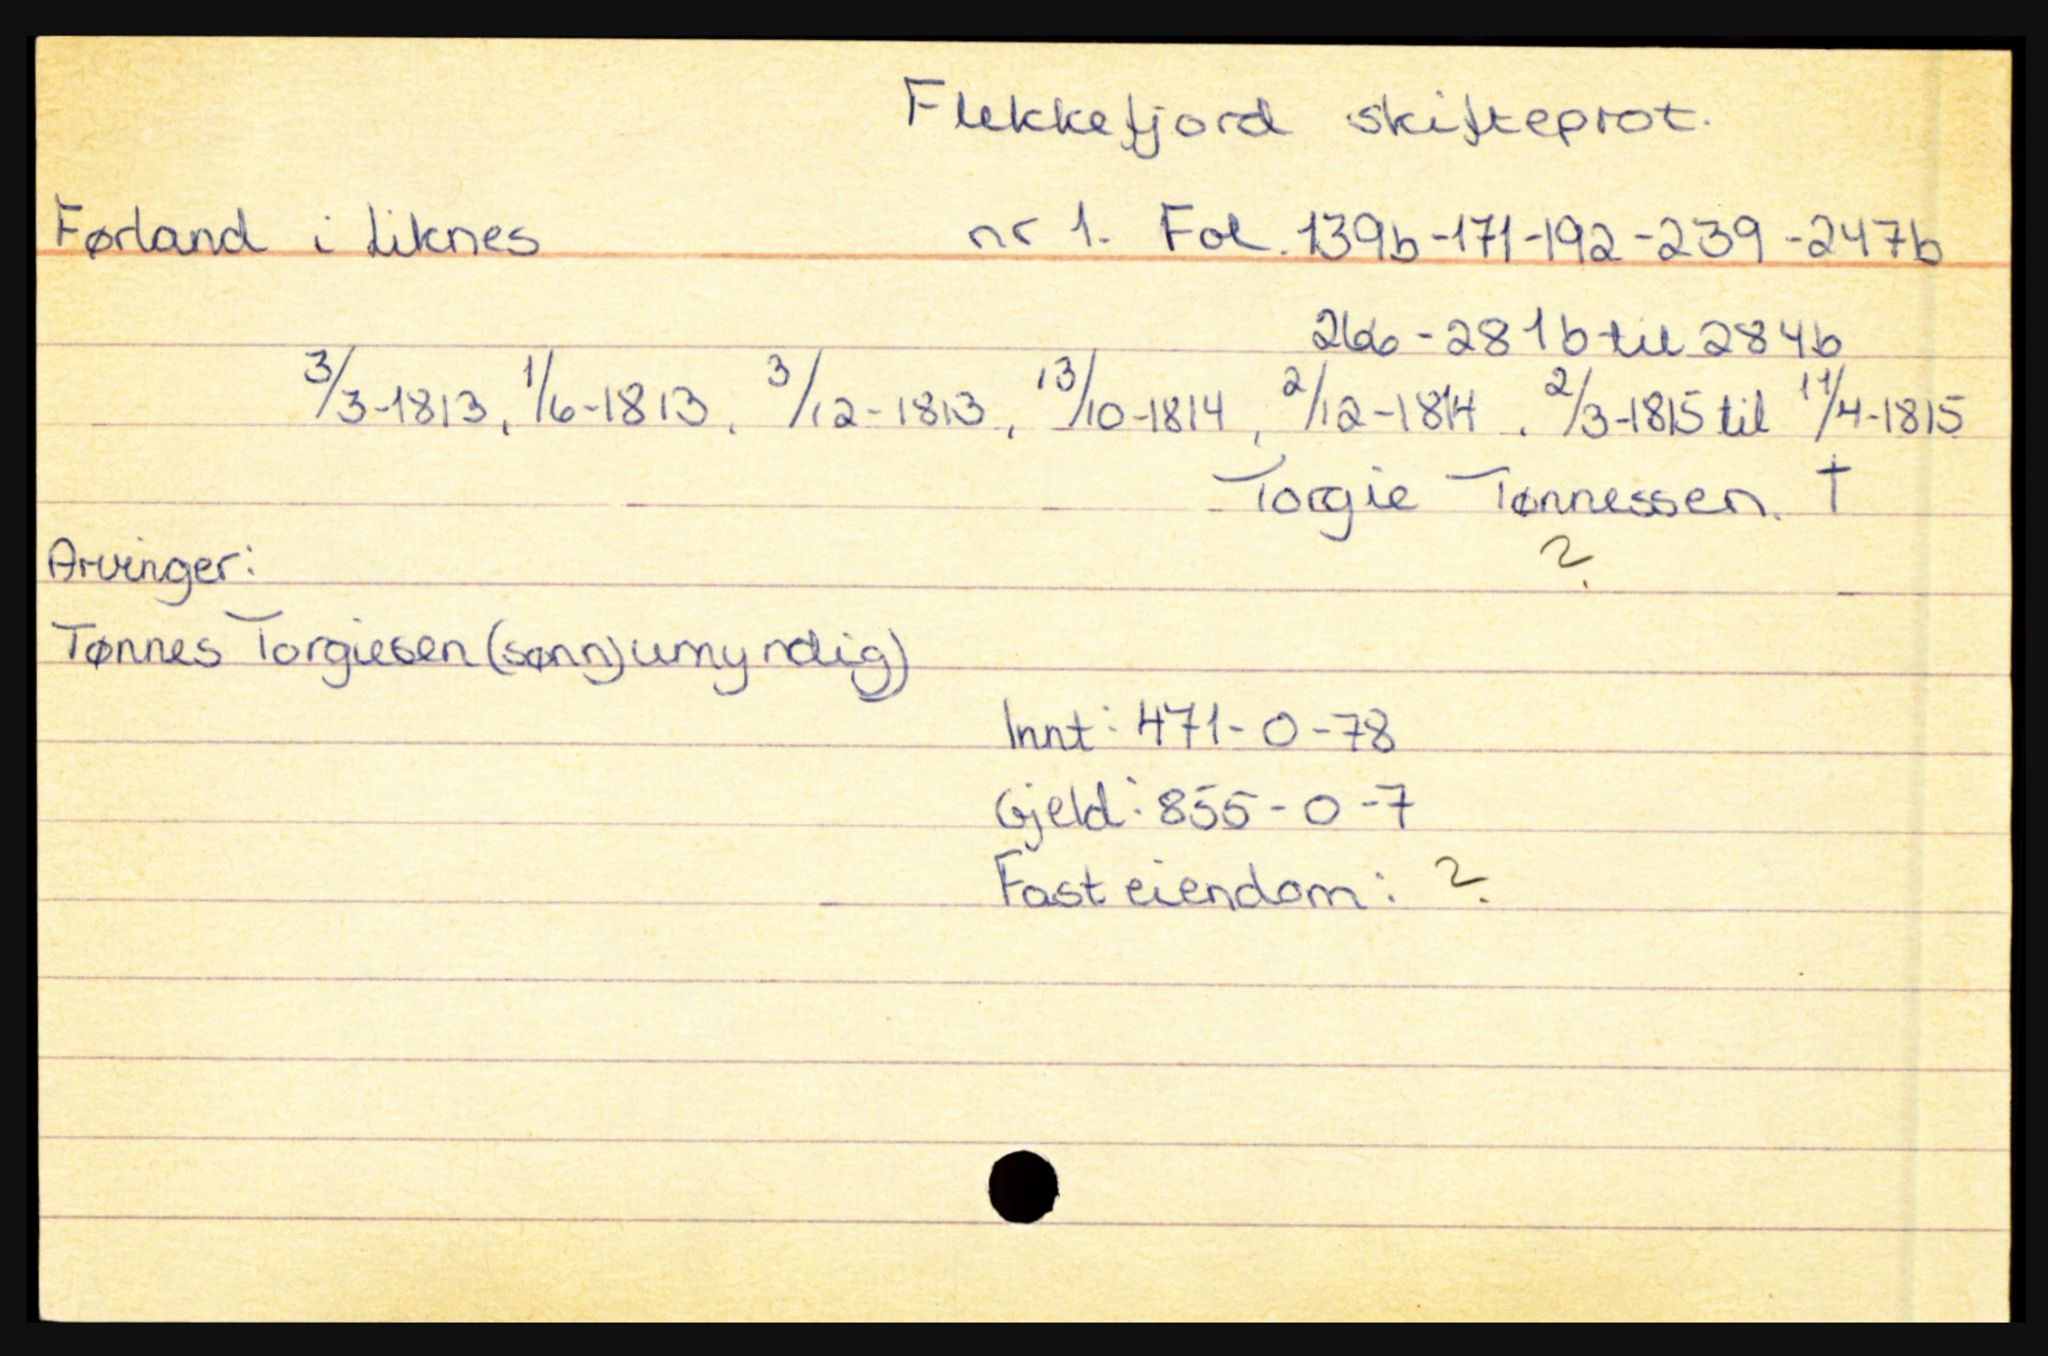 Flekkefjord skifteprot.
Førland i Liknes nr 1. Fol. 139b-171-192-239-247b
266-281b til 284b
3/3-1813, 1/6-1813, 3/12-1813, 13/10-1814, 2/12-1814, 2/3-1815 til 11/4-1815
Torgie Tønnessen. †
?
Arvinger:
Tønnes Torgiesen (sønn) umyndig)
Innt: 471-0-78
Gjeld: 855-0-7
Fast eiendom: ?